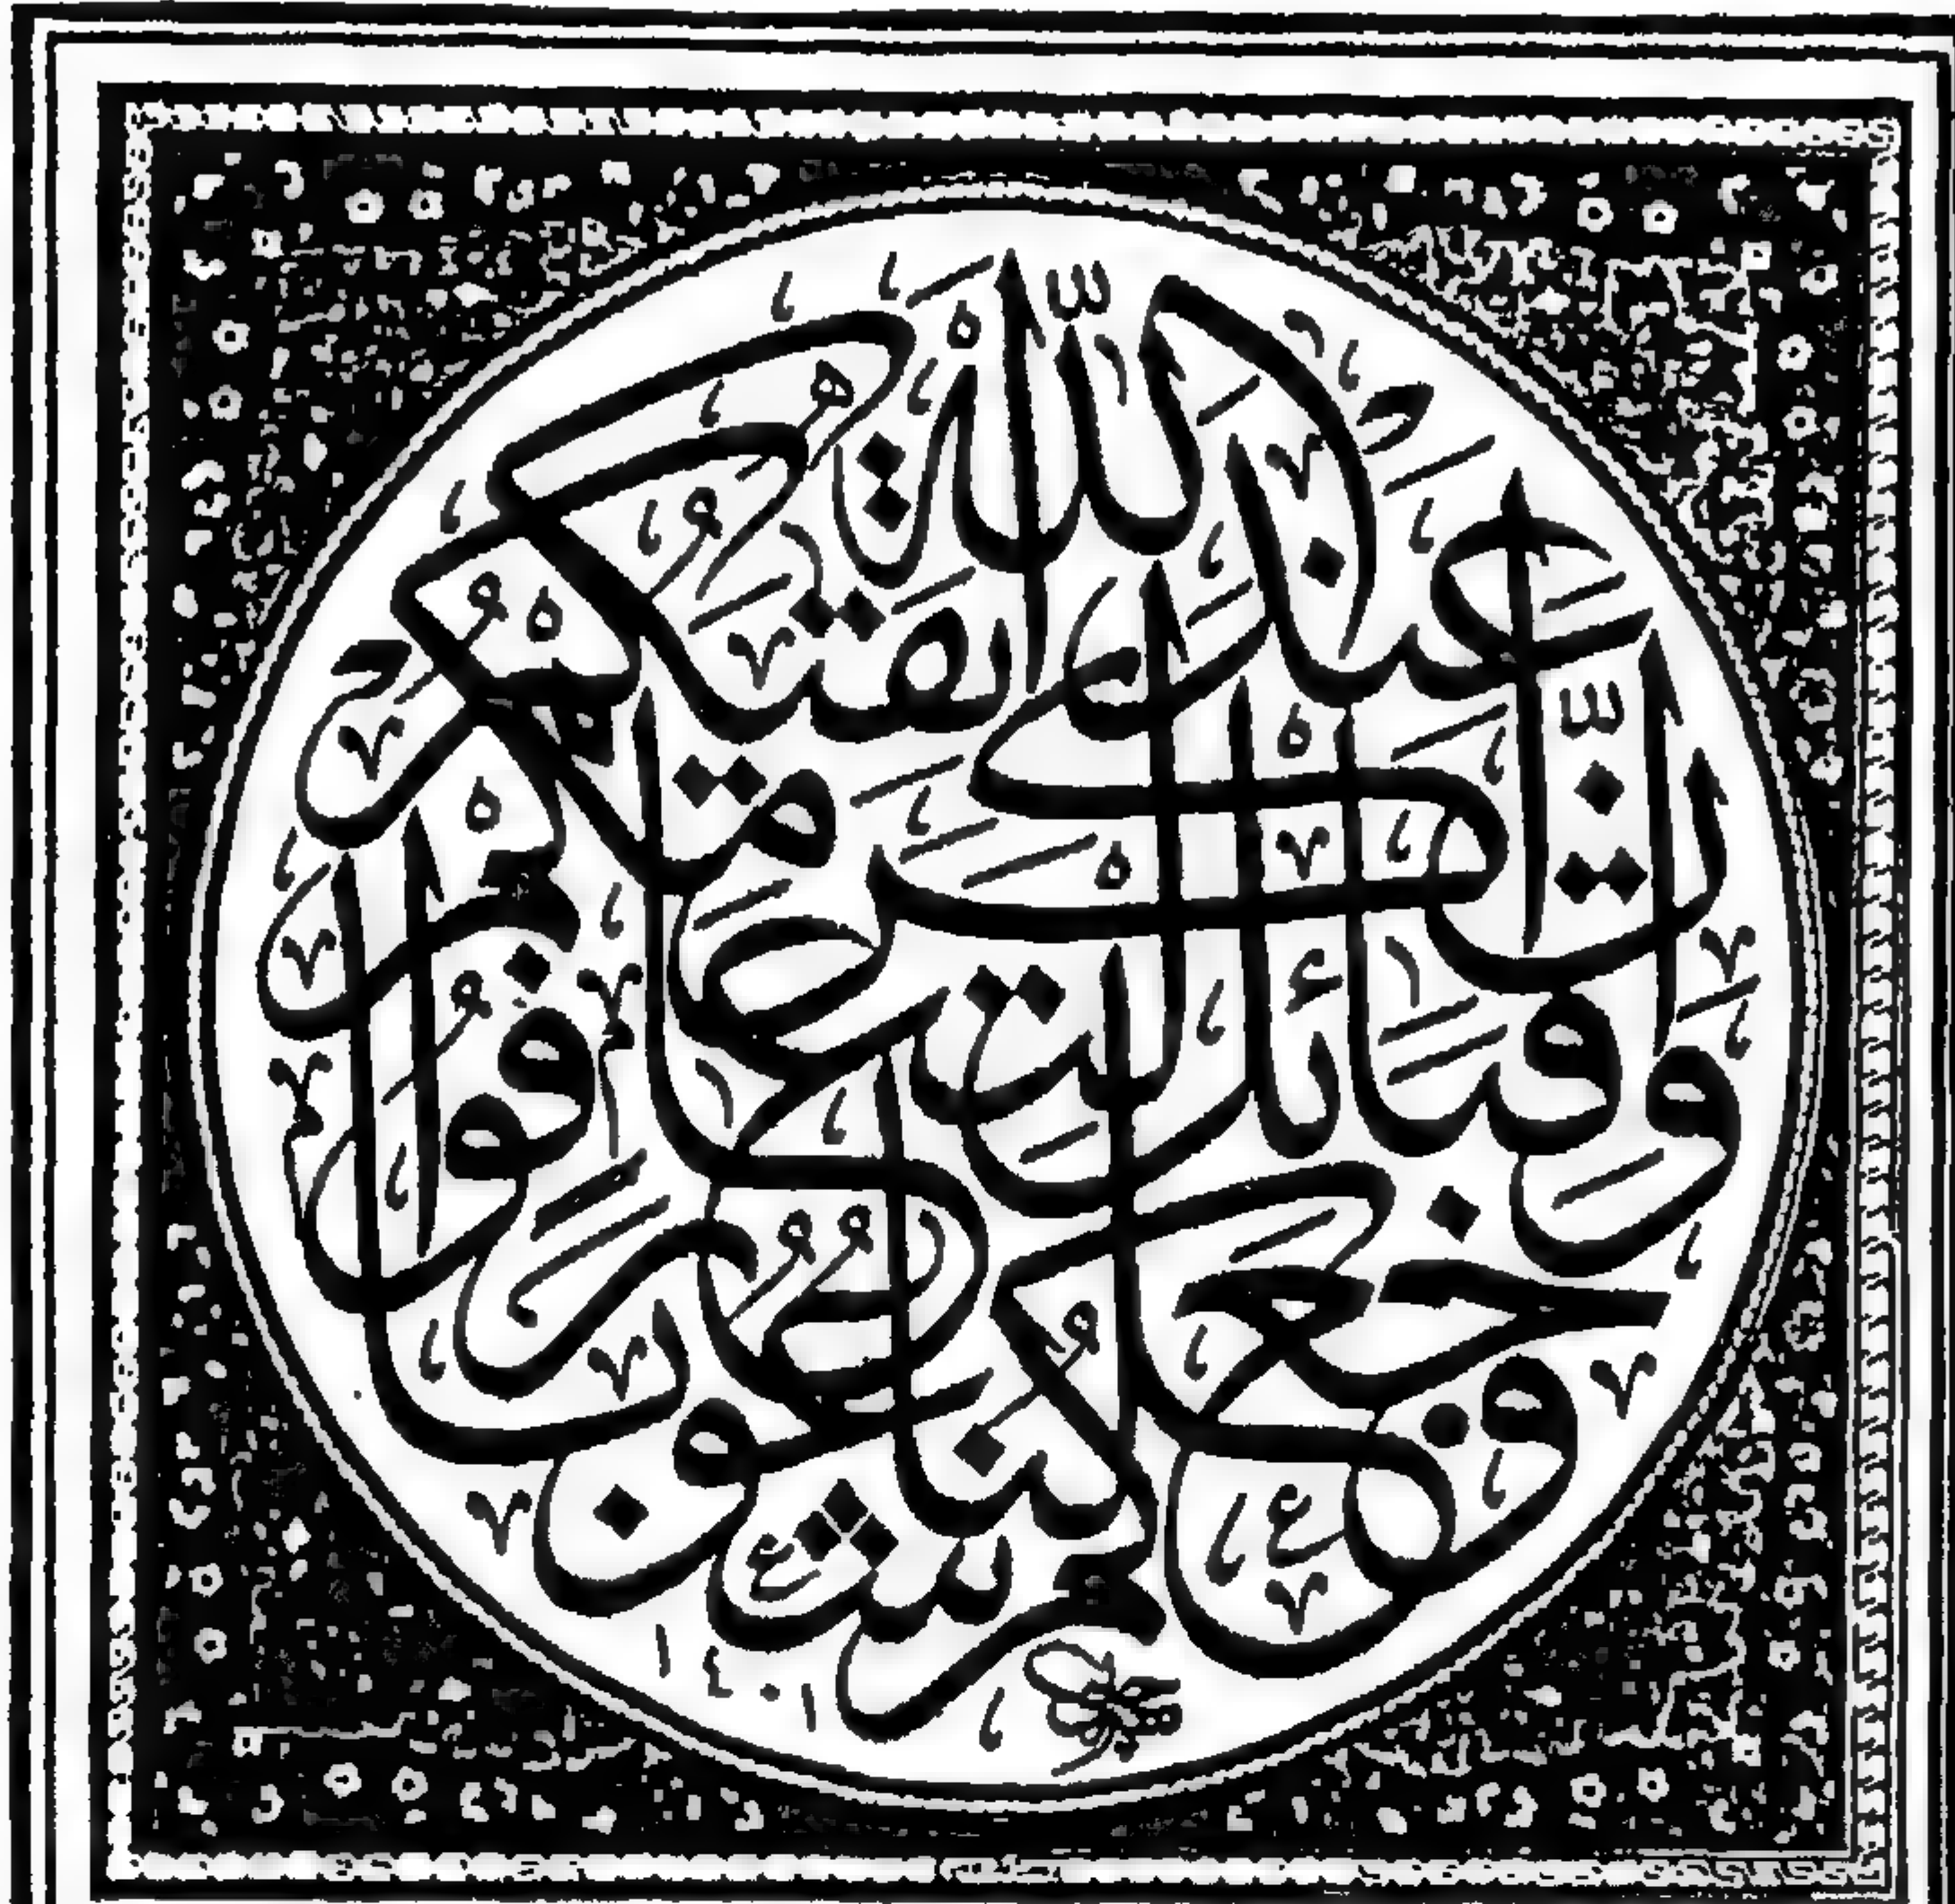 وجعلناكم شعوبا
وقبائل لتعارفوا
ان اكرمكم
عند الله اتقيكم
١٤٠١